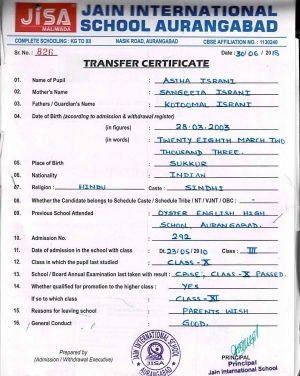 JISA
MALIWADA
JAIN INTERNATIONAL
SCHOOL AURANGABAD
COMPLETE SCHOOLING : KG TO XII NASIK ROAD, AURANGABAD CBSE AFFILIATION NO. : 1130240
Sr. No. : 826 Date : 30/06/2018
TRANSFER CERTIFICATE
01. Name of Pupil ASTHA ISRANI
02. Mother's Name SANGEETA ISRANI
03. Fathers / Guardian's Name KOTOOMAL ISRANI
04. Date of Birth (according to admission & withdrawal register)
(in figures) 28-03-2003
(in words) TWENTY EIGHTH MARCH TWO
THOUSAND THREE.
05. Place of Birth SUKKUR
06. Nationality INDIAN
07. Religion : HINDU Caste : SINDHI
08. Whether the Candidate belongs to Schedule Caste / Schedule Tribe / NT / VJNT / OBC : -
09. Previous School Attended OYSTER ENGLISH HIGH
SCHOOL, AURANGABAD.
10. Admission No. 292
11. Date of admission in the school with class Dt. 23/05/2010 Class : III
12. Class in which the pupil last studied CLASS - X
13. School / Board Annual Examination last taken with result : CBSE, CLASS-X PASSED.
14. Whether qualified for promotion to the higher class : YES
If so to which class CLASS - XI
15. Reasons for leaving school PARENTS WISH
16. General Conduct GOOD.
Prepared by
(Admission / Withdrawal Executive)
JAIN INTERNATIONAL SCHOOL
JISA
AURANGABAD
PRINCIPAL
Principal
Jain International School